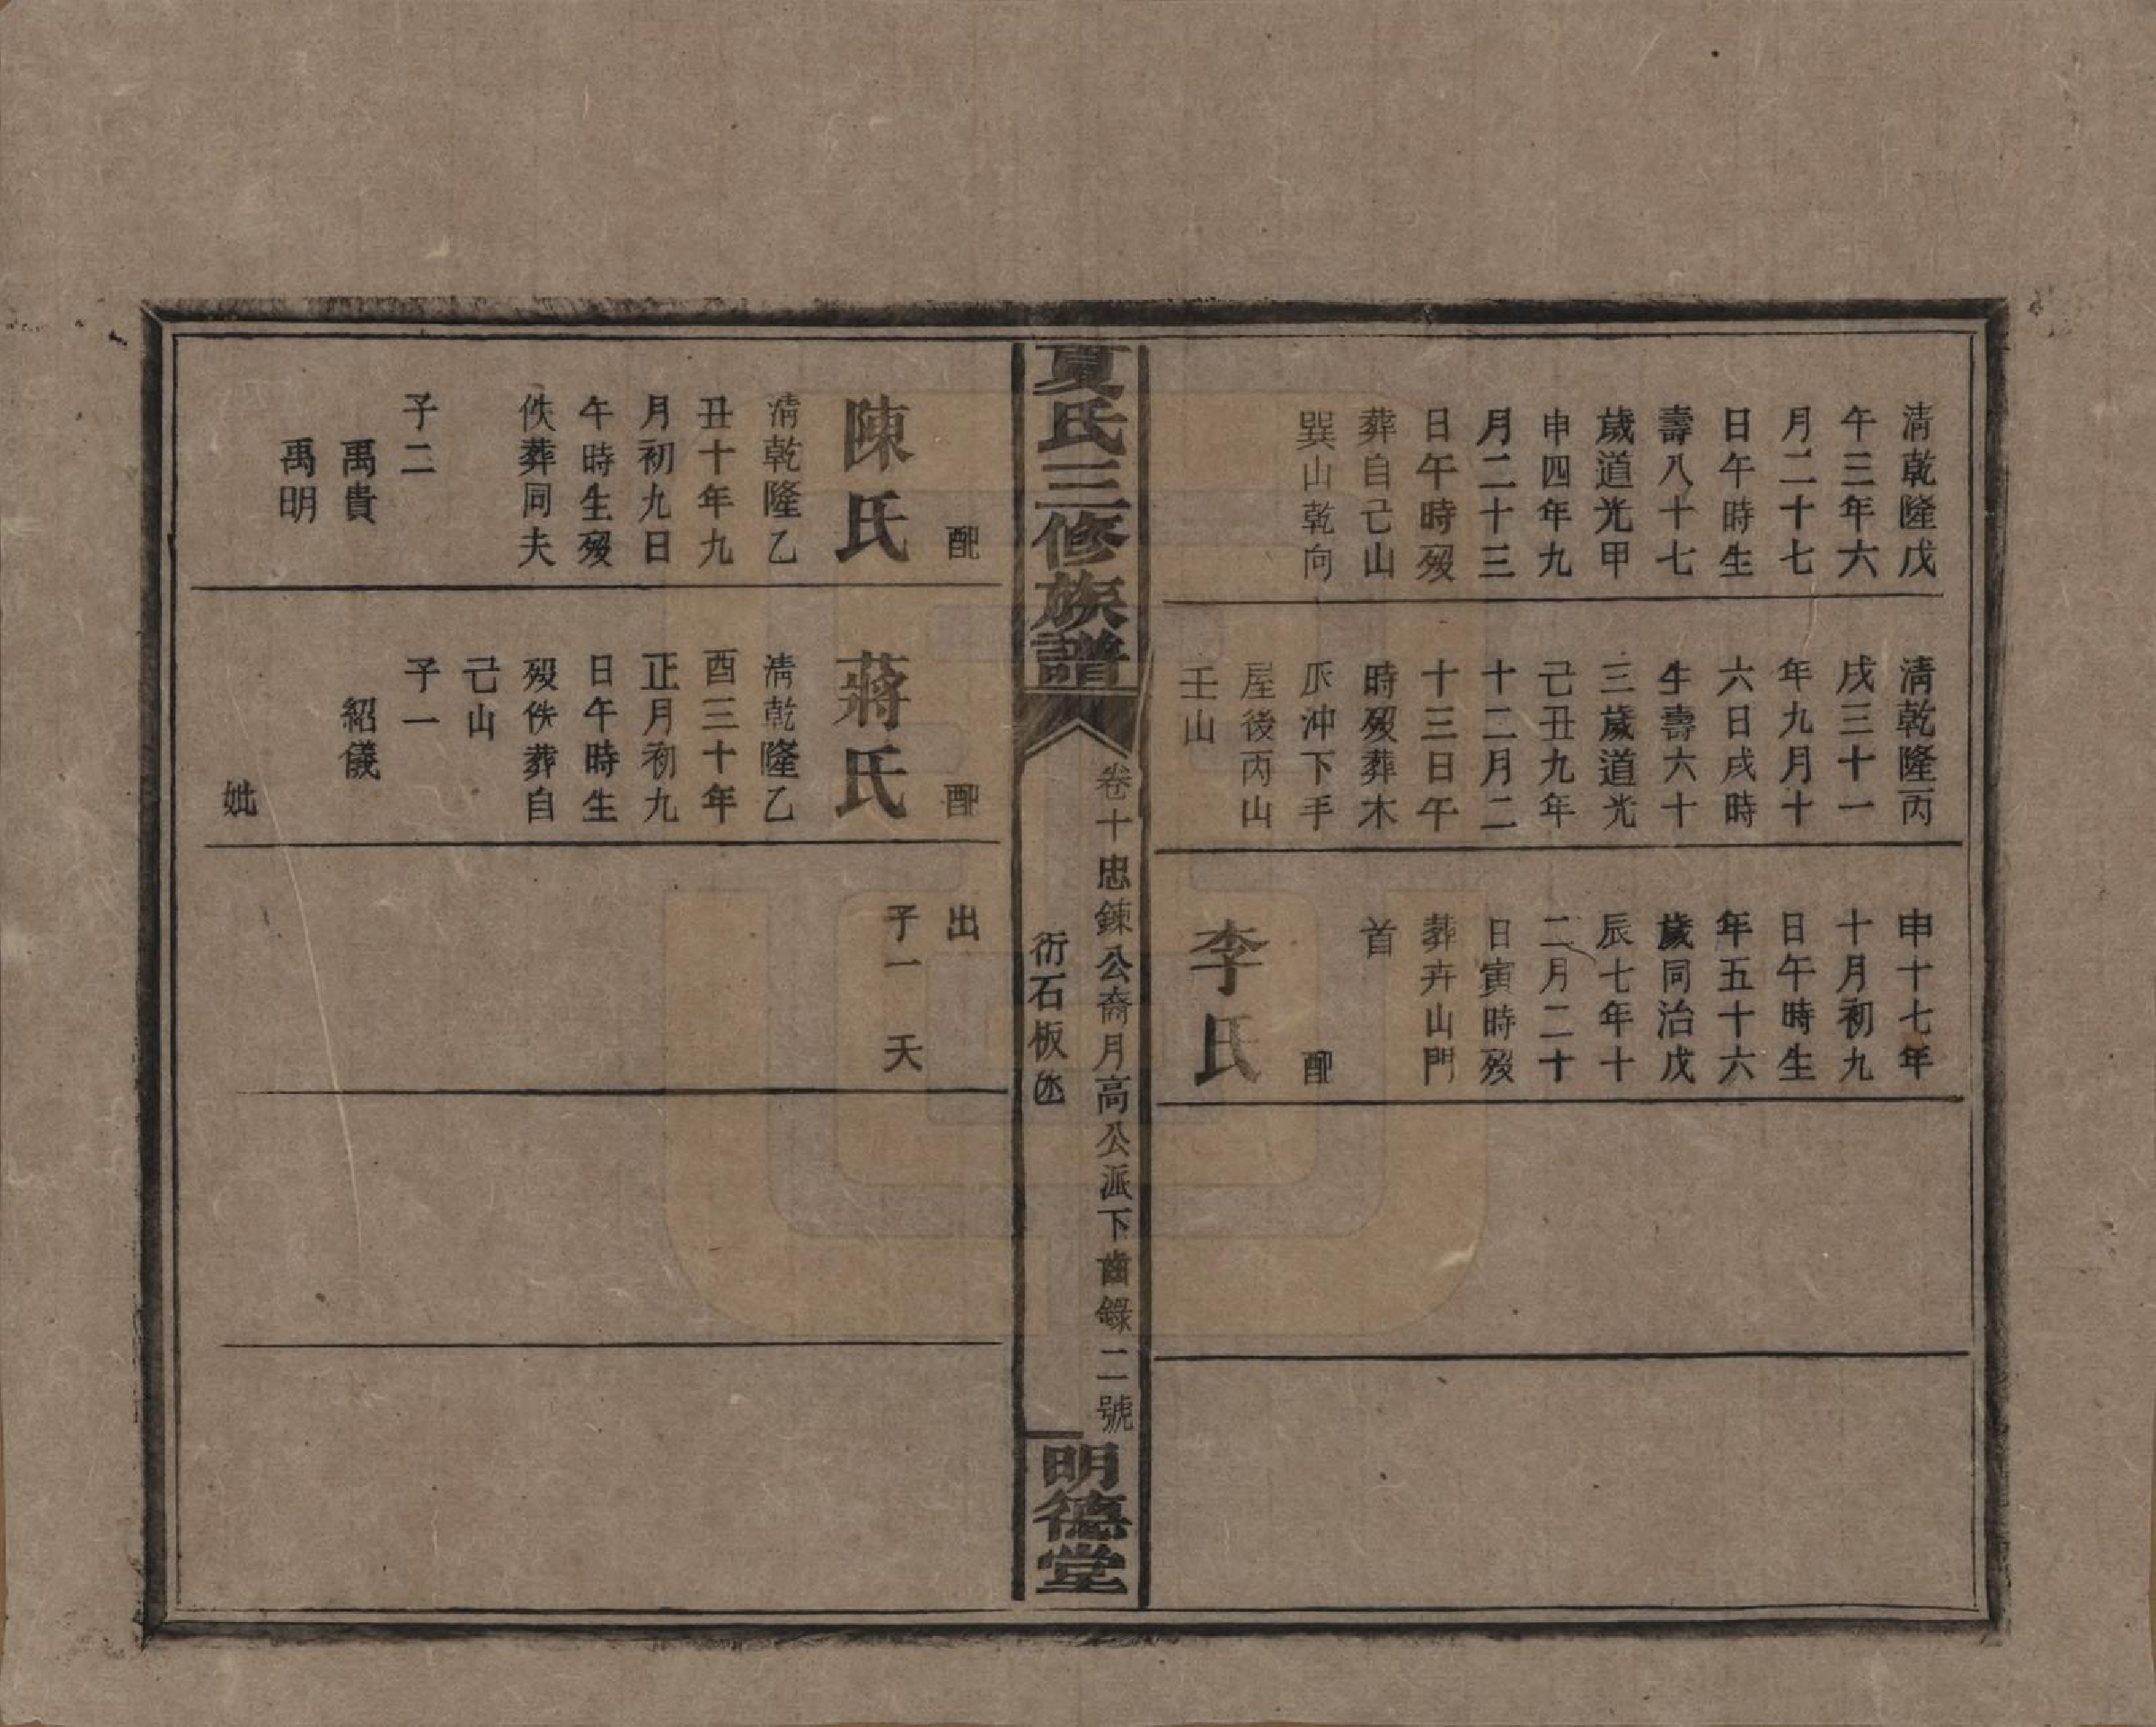 清乾隆戊
午三年六
月二十七
日午時生
壽八十七
歲道光甲
申四年九
月二十三
日午時殁
葬自己山
巽山乾向
清乾隆丙
戌三十一
年九月十
六日戌時
生壽六十
三歲道光
己丑九年
十二月二
十三日午
時殁葬木
爪沖下手
屋後丙山
壬山
申十七年
十月初九
日午時生
年五十六
歲同治戊
辰七年十
二月二十
日寅時殁
葬卉山門
首
配
李氏
夏氏三修族譜
卷十忠鍊公裔月高公派下齒錄 二號
衍石板
明德堂
配
陳氏
清乾隆乙
丑十年九
月初九日
午時生殁
佚葬同夫
子二
禹貴
禹明
配
蔣氏
清乾隆乙
酉三十年
正月初九
日午時生
殁佚葬自
己山
子一
紹儀
妣
出
子一 天